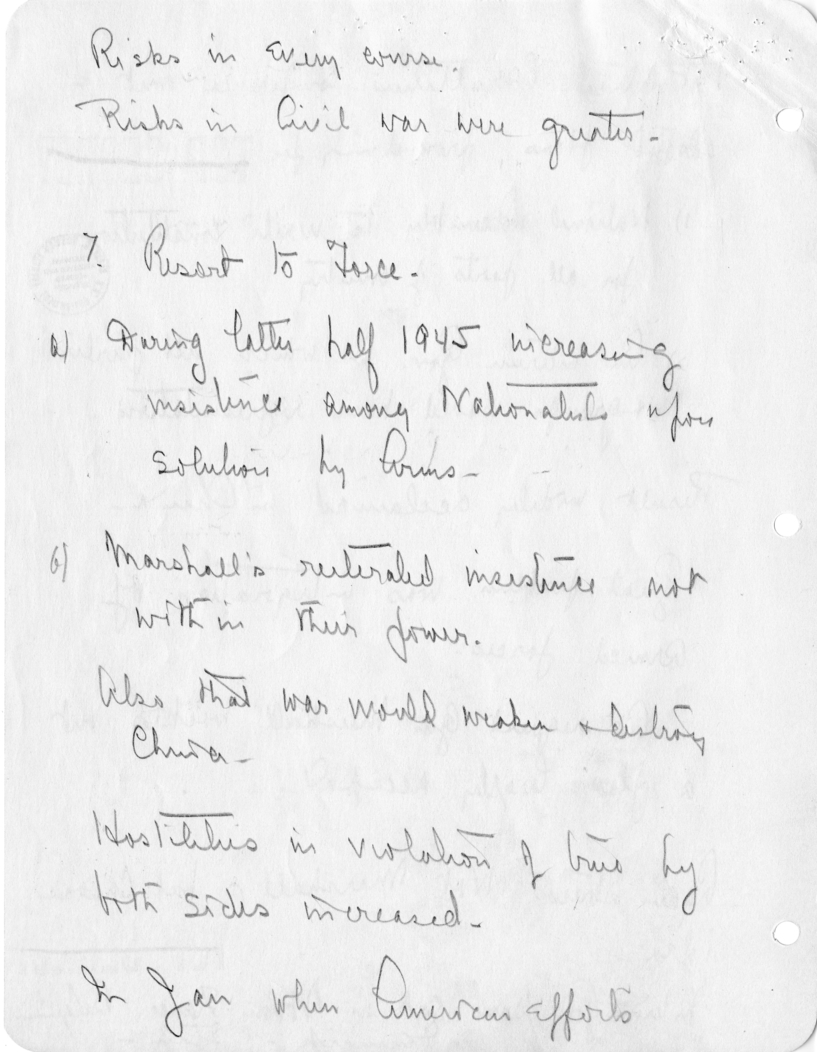 Risks in every course.
Risks in Civil war were greater -
7. Resort to Force.
a) During latter half 1945 increasing
insistence among Nationalists upon
solution by Arms -
b) Marshall's reiterated insistence not
within their power.
Also that war would weaken & destroy
China -
Hostilities in violation of truce by
both sides increased -
In Jan when American efforts